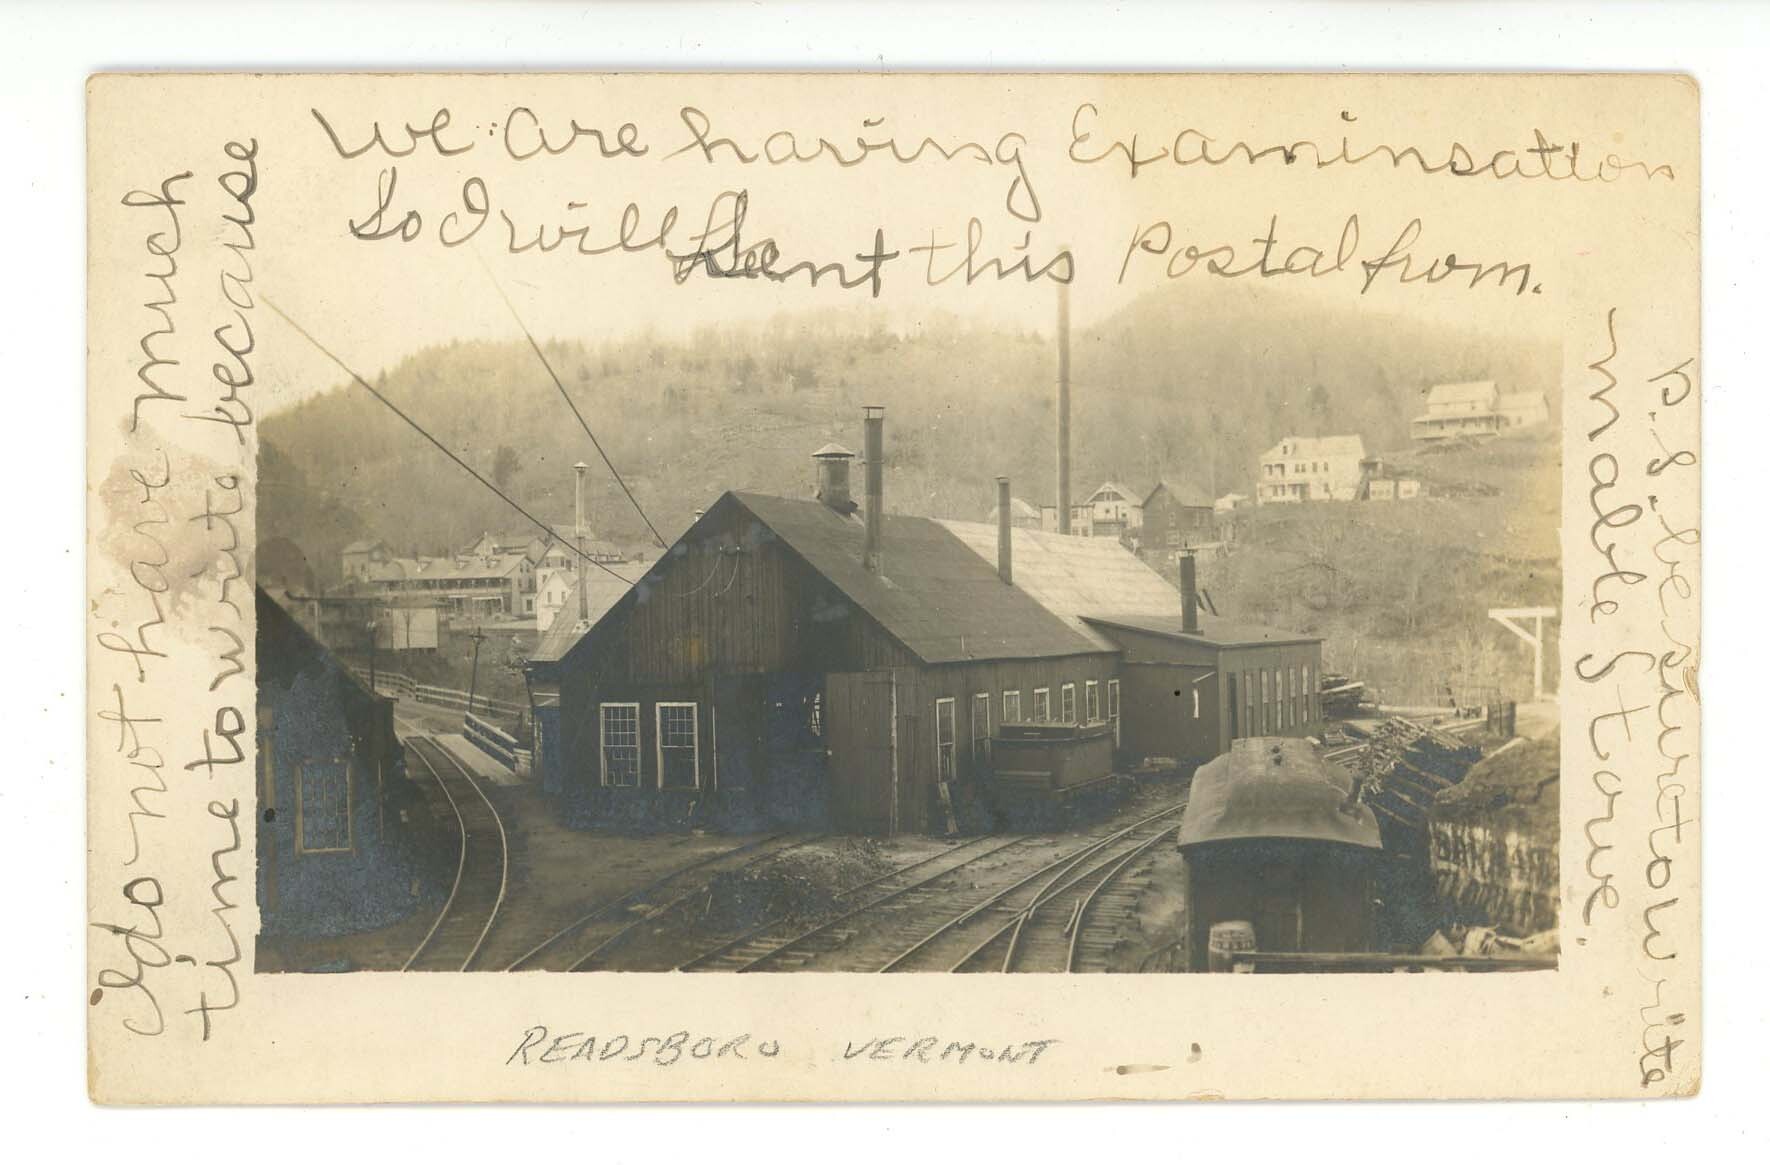 I do not have much
time to write because
We are having Examinsation
So I will Sent this Postal from.
Mable Stowe.
P.S. be suretowrite
READSBORO VERMONT